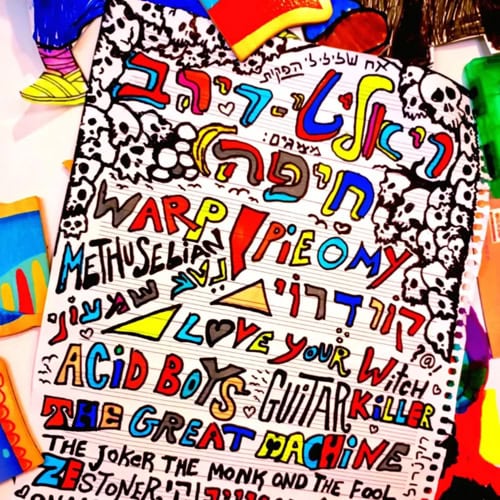 אח שלי לי לי הפקות
ריאליטי-ריהב
מציגים:
(חיפה)
WARP! PIEOMY
METHUSELIAN נטע שמעוני קורדרוי
LOVE YOUR WITCH
ACiD BOYS GUITAR KILLER
THE GREAT MACHINE
THE JOKER THE MONK AND THE FOOL
ZE STONER